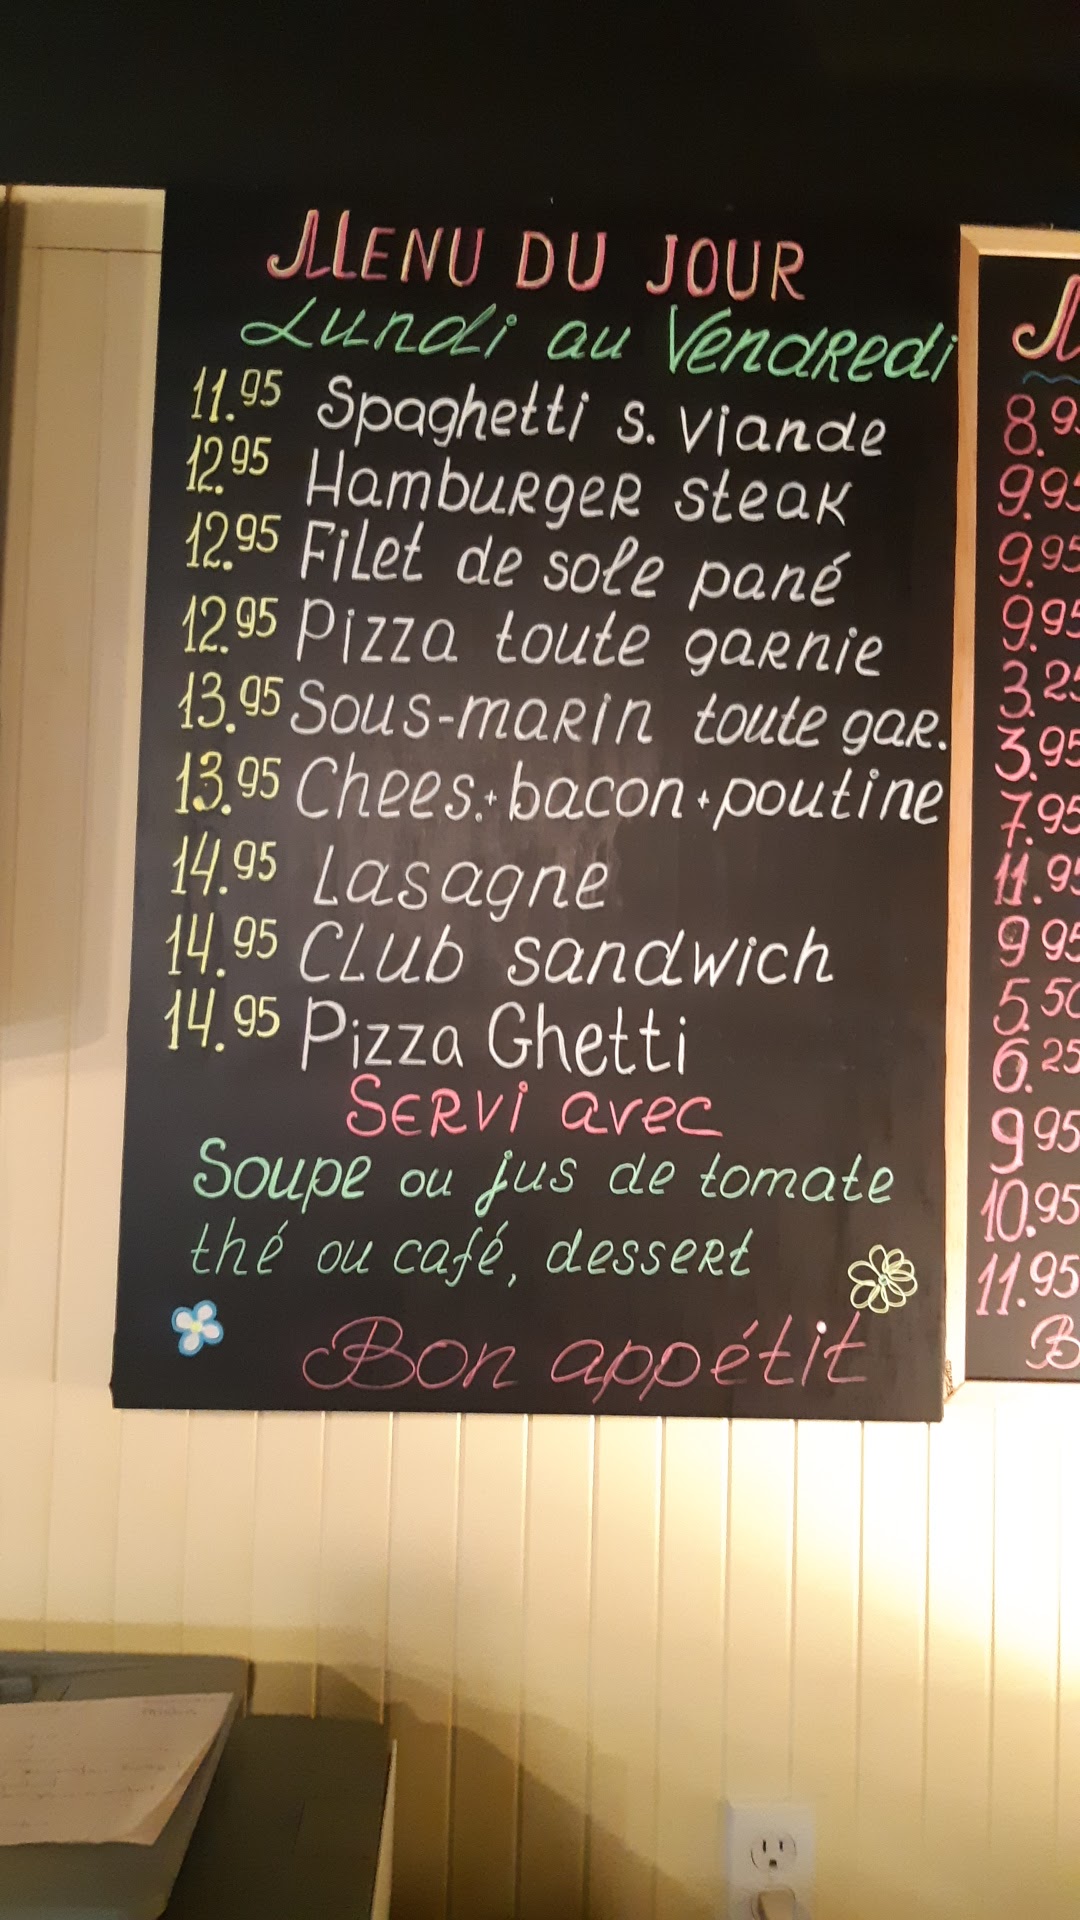 MENU DU JOUR
Lundi au Vendredi
11.95 Spaghetti s. viande
12.95 Hamburger steak
12.95 Filet de sole pané
12.95 Pizza toute garnie
13.95 Sous-marin toute gar.
13.95 Chees.+bacon+poutine
14.95 Lasagne
14.95 Club sandwich
14.95 Pizza Ghetti
Servi avec
Soupe ou jus de tomate
thé ou café, dessert
Bon appétit
8.9
9.95
9.95
9.95
3.25
3.95
7.95
11.95
9 95
5.50
6.25
9 95
10.95
11.95
B